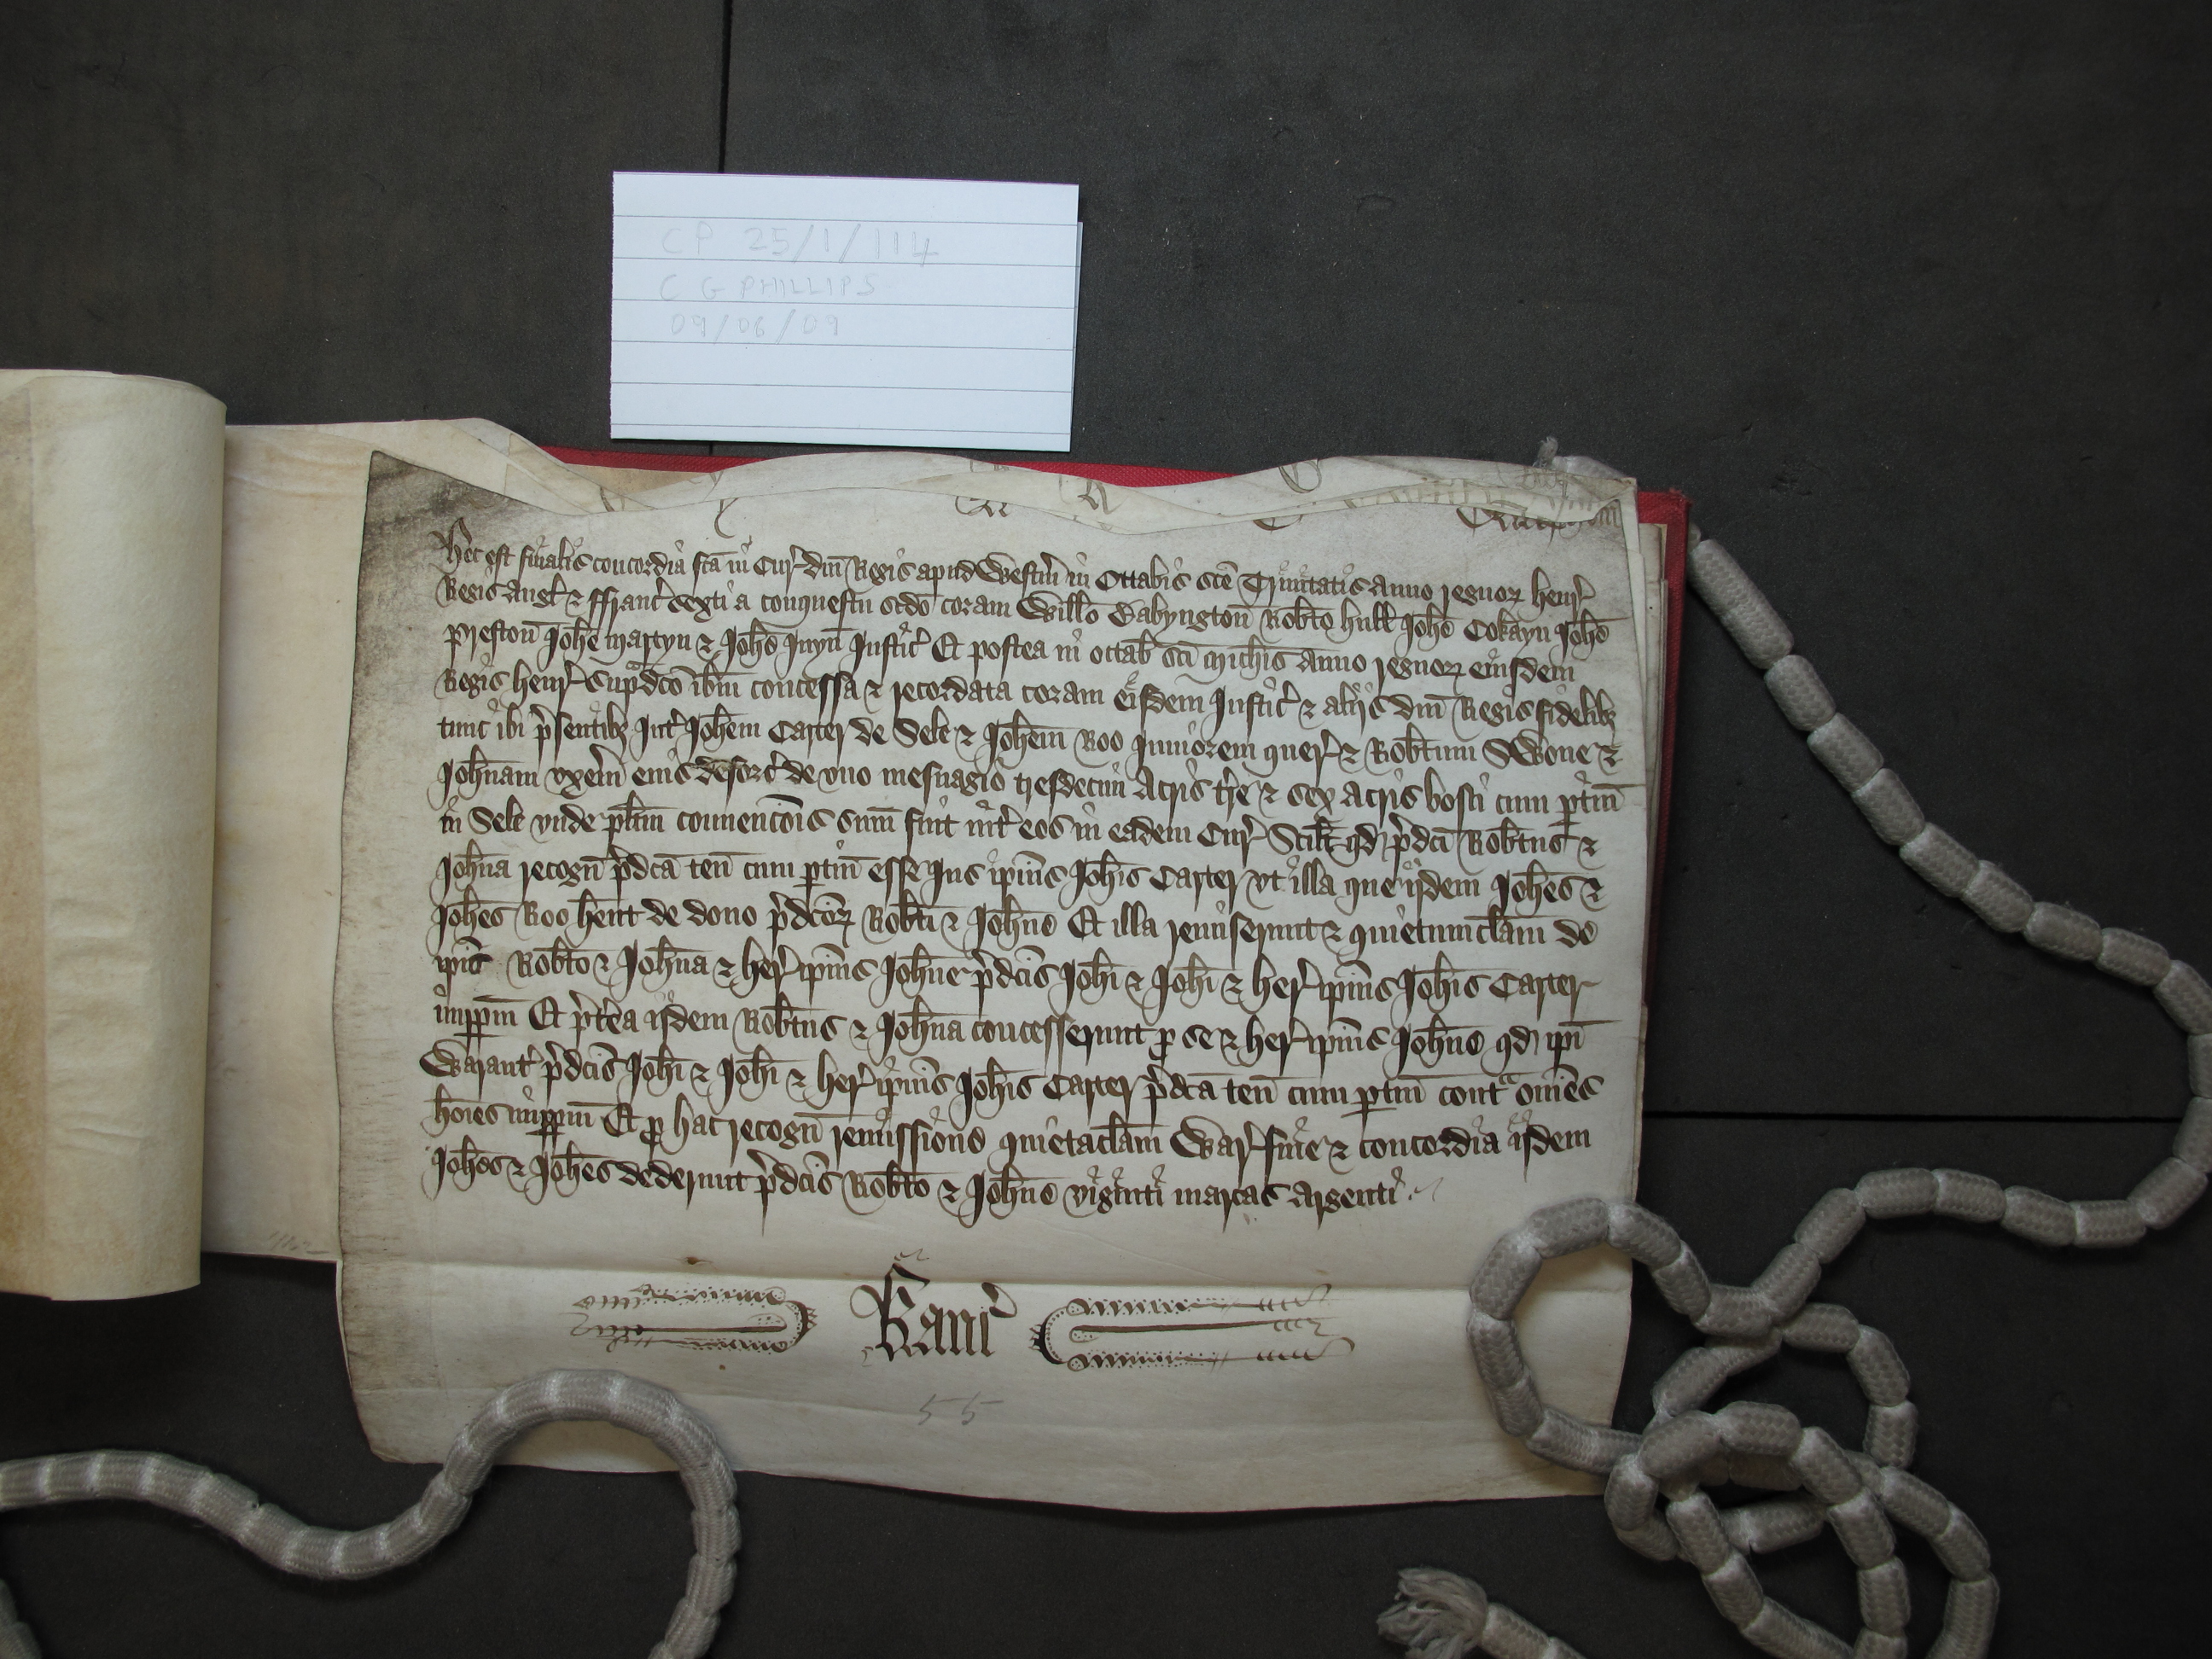 CP 25/1/114
C G PHILLIPS
09/06/09
Hec est finalis concordia fc̄a in Cur̄ dn̄i Regis apud Westm̄ in Octabis sc̄e Trinitatis Anno regnoꝝ Henr̄
Regis Angl̄ ⁊ ffranc̄ sexti a conquestu scd̄o coram Will̄o Babyngton̄ Rob̄to Hull̄ Joh̄e Cokayn Joh̄e
Preston̄ Joh̄e Martyn ⁊ Joh̄e Juyn̄ Justic̄ Et postea in octab̄ sc̄i Mich̄is Anno regnoꝝ eiusdem
Regis Henr̄ sup̄dc̄o ib̄m concessa ⁊ recordata coram eisdem Justic̄ ⁊ alijs dn̄i Regis fidelibꝫ
tunc ibi p̄sentibꝫ Int̄ Joh̄em Carter de Sele ⁊ Joh̄em Roo Juniorem quer̄ ⁊ Rob̄tum Swone ⁊
Joh̄nam vxem̄ eius deforc̄ de vno mesuagio tresdecim Acris t̄re ⁊ sex acris bosci cum ptin̄
in Sele vnde pl̄itm convenc̄ois sum̄ fuit int̄ eos in eadem Cur̄ Scil̄t qd p̄dc̄i Rob̄tus ⁊
Joh̄na recogn̄ p̄dc̄a ten̄ cum ptin̄ esse Jus ip̄ius Joh̄is Carter vt illa que ijdem Joh̄es ⁊
Joh̄es Roo h̄ent de dono p̄dc̄oꝝ Rob̄ti ⁊ Joh̄ne Et illa remiserunt ⁊ quietumclam̄ de
ip̄is Rob̄to ⁊ Joh̄na ⁊ her̄ ip̄ius Joh̄ne p̄dc̄is Joh̄i ⁊ Joh̄i ⁊ her̄ ip̄ius Joh̄is Carter
imppm̄ Et p̄t̄ea ijdem Rob̄tus ⁊ Joh̄na concesserunt p se ⁊ her̄ ip̄ius Joh̄ne qd ip̄i
Warant̄ p̄dc̄is Joh̄i ⁊ Joh̄i ⁊ her̄ ip̄ius Joh̄is Carter p̄dc̄a ten̄ cum ptin̄ contᵃ om̄es
ho̅ies imppm̄ Et p hac recogn̄ remissione quietaclam̄ War̄ fine ⁊ concordia ijdem
Joh̄es ⁊ Joh̄es dederunt p̄dc̄is Rob̄to ⁊ Joh̄ne viginti marcas argenti
Kanc̄
55